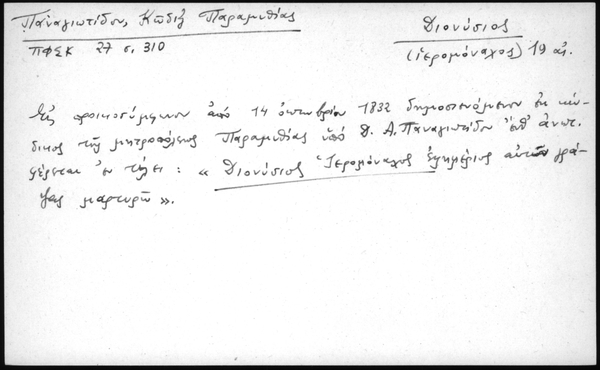 Παναγιωτίδου, Κῶδιξ Παραμυθίας
ΠΦΣΚ 27 σ. 310
Διονύσιος
(ἱερομόναχος) 19 αἰ.
Εἰς προικοσύμφωνον ἀπό 14 ὀκτωβρίου 1832 δημοσιευόμενον ἐκ κώ-
δικος τῆς μητροπόλεως Παραμυθίας ὑπό Δ. Α. Παναγιωτίδου ἔνθ' ἀνωτ.
φέρεται ἐν τέλει : « Διονύσιος Ἱερομόναχος ἐφημέριος αὐτῶν γρά-
ψας μαρτυρῶ ».